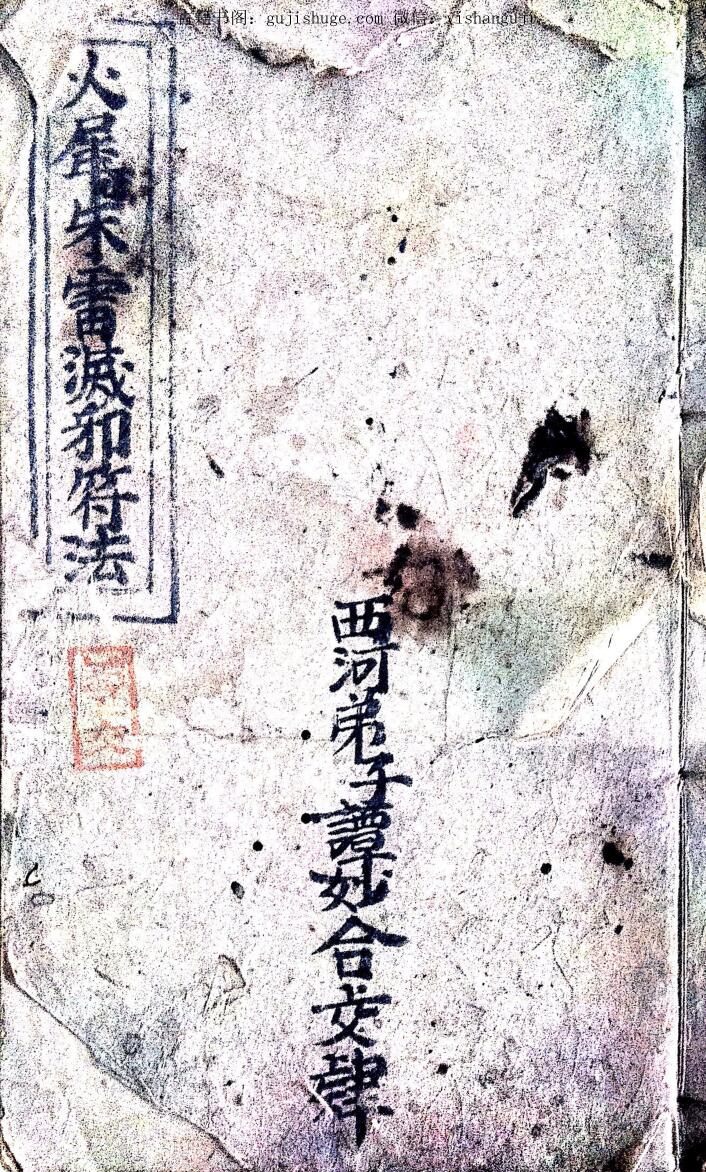 善書阁：gujishuge.com 微信：yishanguji
火犀朱雷滅邪符法
西河弟子譚妙合文肆